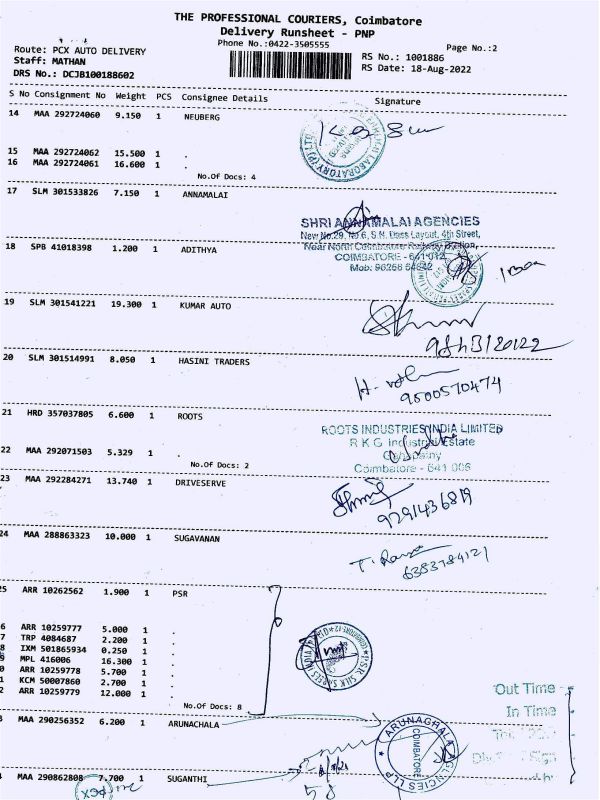 THE PROFESSIONAL COURIERS, Coimbatore
Delivery Runsheet - PNP
Phone No.:0422-3505555
Page No.:2
Route: PCX AUTO DELIVERY
RS No.: 1001886
Staff: MATHAN
RS Date: 18-Aug-2022
DRS No.: DCJB100188602
S No Consignment No Weight PCS Consignee Details Signature
14 MAA 292724060 9.150 1 NEUBERG
15 MAA 292724062 15.500 1 .
16 MAA 292724061 16.600 1 .
No.Of Docs: 4
17 SLM 301533826 7.150 1 ANNAMALAI
SHRI ANNAMALAI AGENCIES
New No.29, No.6, S.N. Dass Layout, 4th Street,
Near North Coimbatore Railway Station,
COIMBATORE - 641 012
18 SPB 41018398 1.200 1 ADITHYA
19 SLM 301541221 19.300 1 KUMAR AUTO
20 SLM 301514991 8.050 1 HASINI TRADERS
9500570474
21 HRD 357037805 6.600 1 ROOTS
ROOTS INDUSTRIES INDIA LIMITED
R K G Industrial Estate
Ganapathy
Coimbatore - 641 006
22 MAA 292071503 5.329 1 .
No.Of Docs: 2
23 MAA 292284271 13.740 1 DRIVESERVE
9291436819
24 MAA 288863323 10.000 1 SUGAVANAN
6383784121
25 ARR 10262562 1.900 1 PSR
6 ARR 10259777 5.000 1 .
7 TRP 4084687 2.200 1 .
8 IXM 501865934 0.250 1 .
9 MPL 416006 16.300 1 .
0 ARR 10259778 5.700 1 .
1 KCM 50007860 2.700 1 .
2 ARR 10259779 12.000 1 .
No.Of Docs: 8
Out Time
In Time
3 MAA 290256352 6.200 1 ARUNACHALA
ARUNACHALA AGENCIES LLP
COIMBATORE
4 MAA 290862808 7.700 1 SUGANTHI
PCX